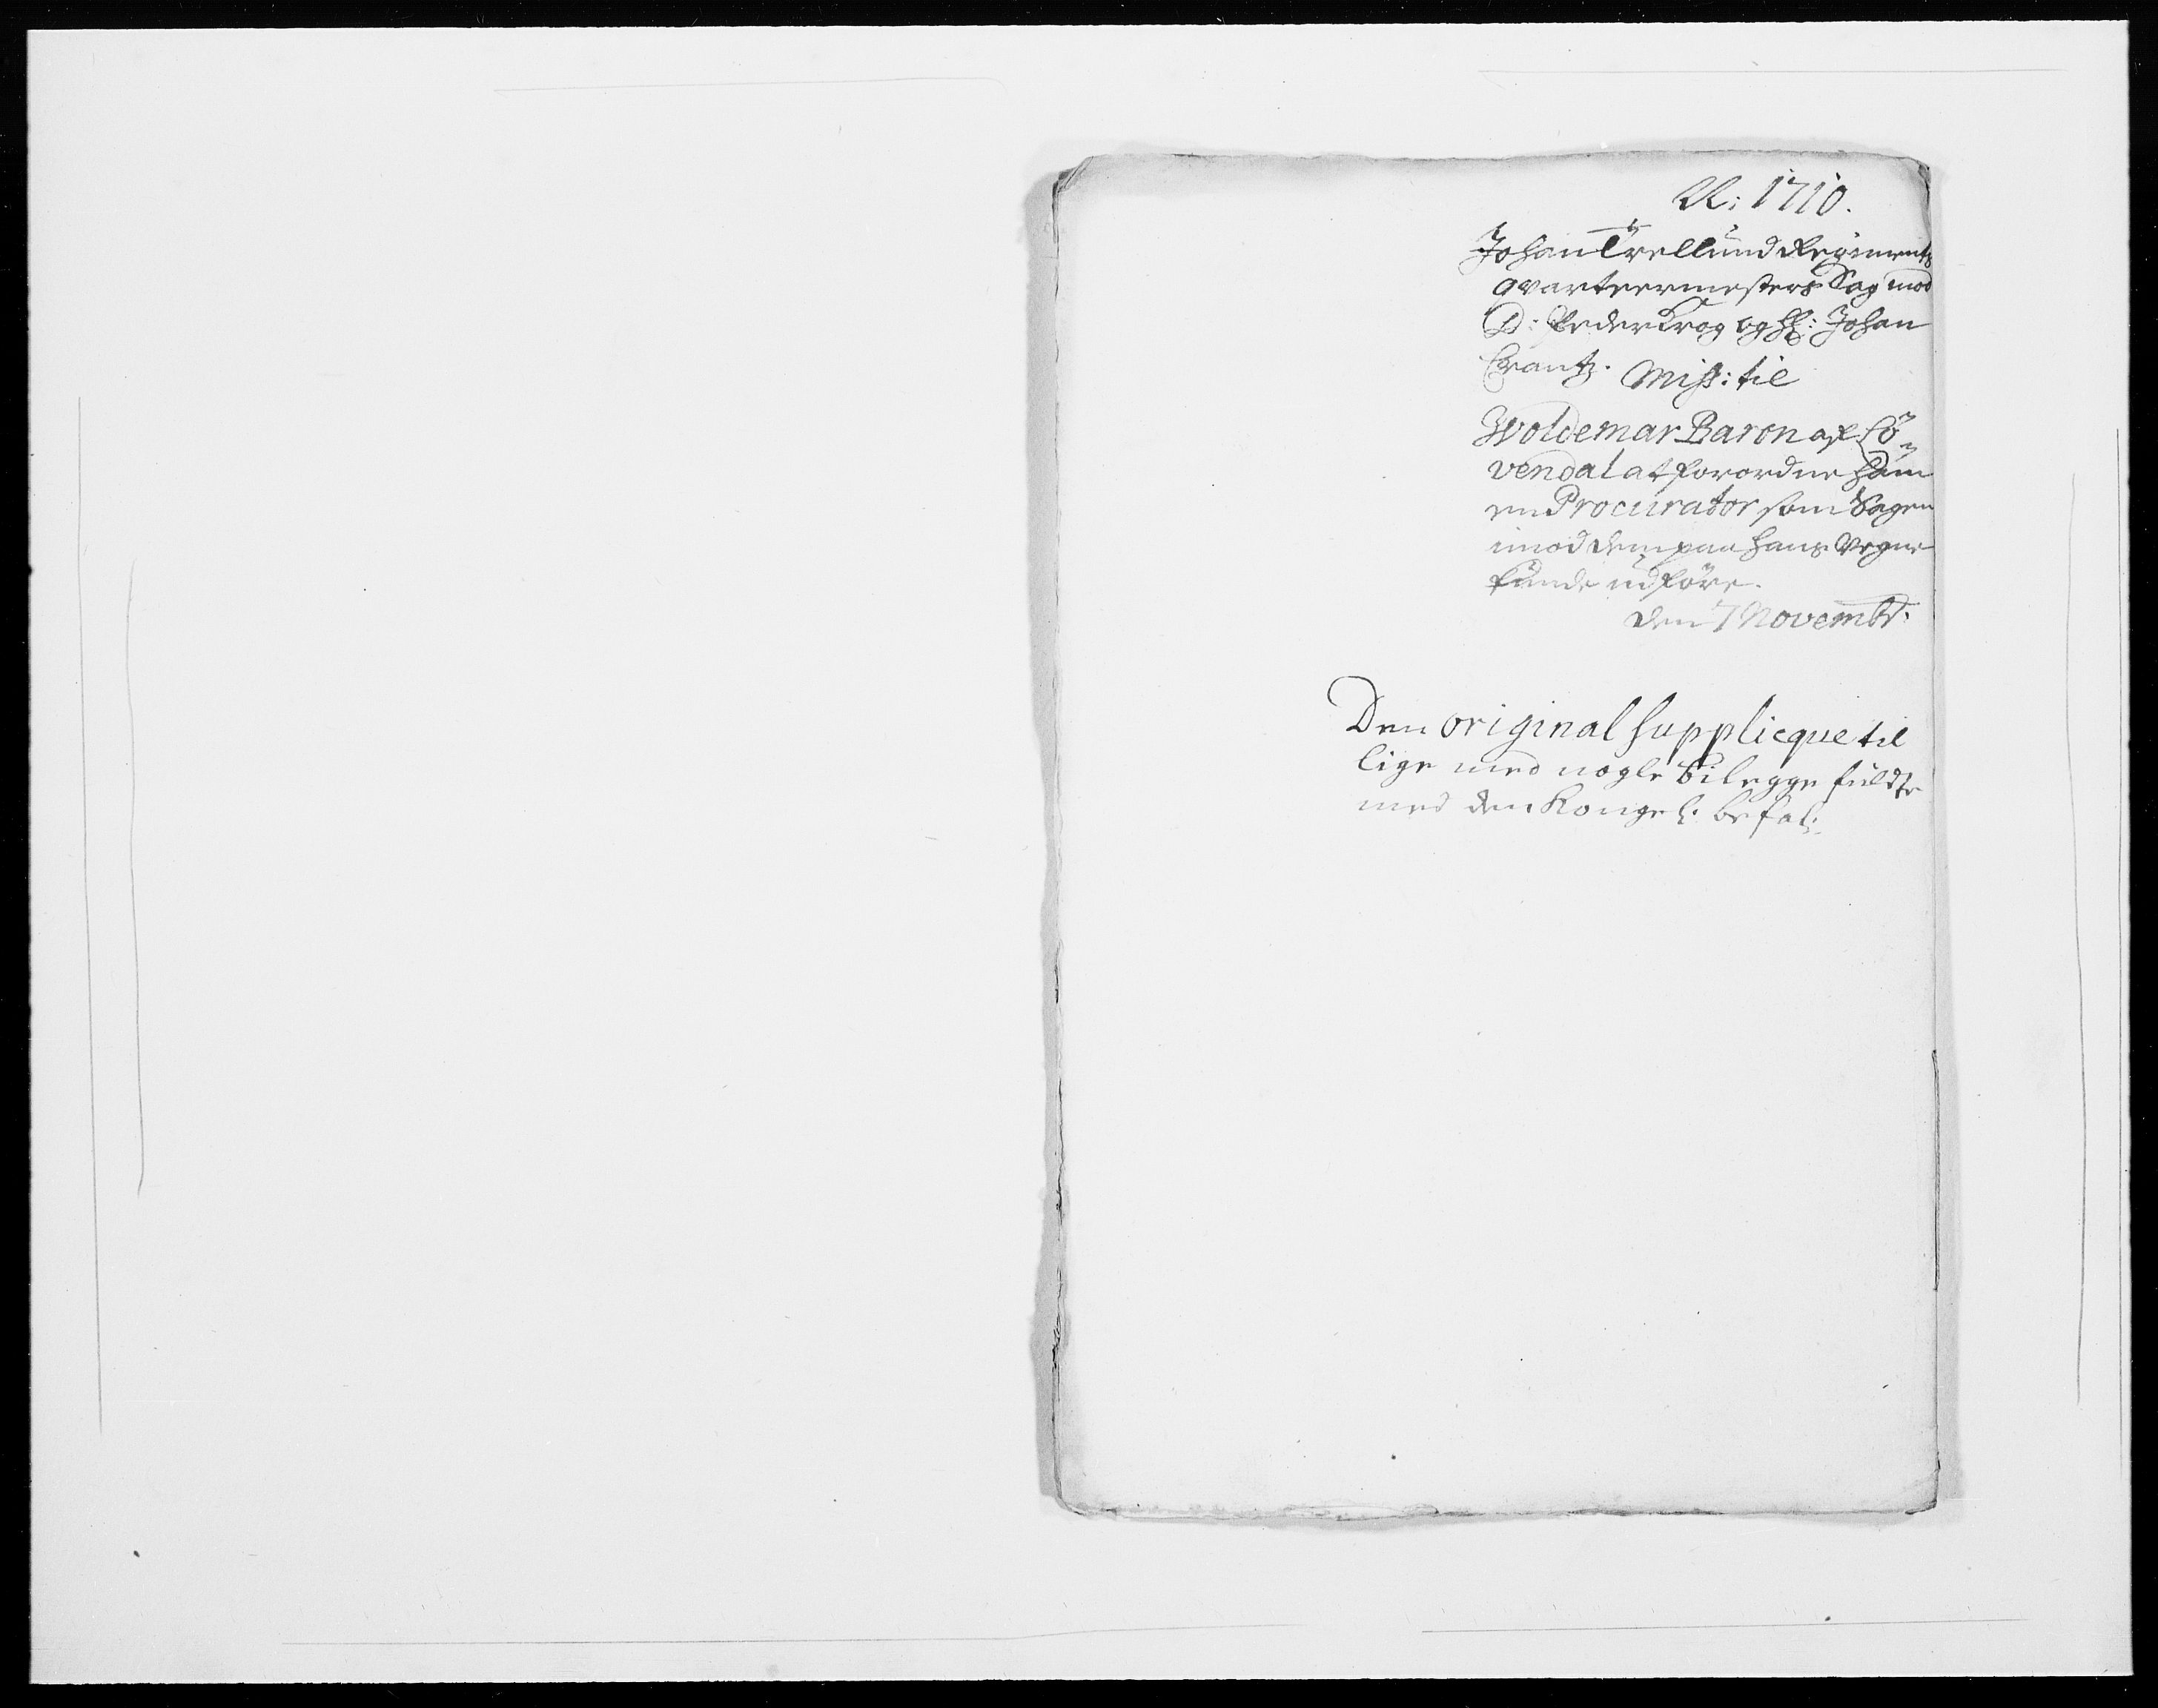 A: 1710.
Johan Trellund Regiments
qvarteermesters Sag mod
D: Peder Krog og Hr: Johan
Crantz. Miss: til
Woldemar Baron af Lö-
vendal at forordne ham
en Procurator som Sagen
imod dem paa hans Vegne
kunde udføre.
den 7 Novembr:
Den original supplicque til
lige med nogle bilegge fuldte
med den Kongel: befal: